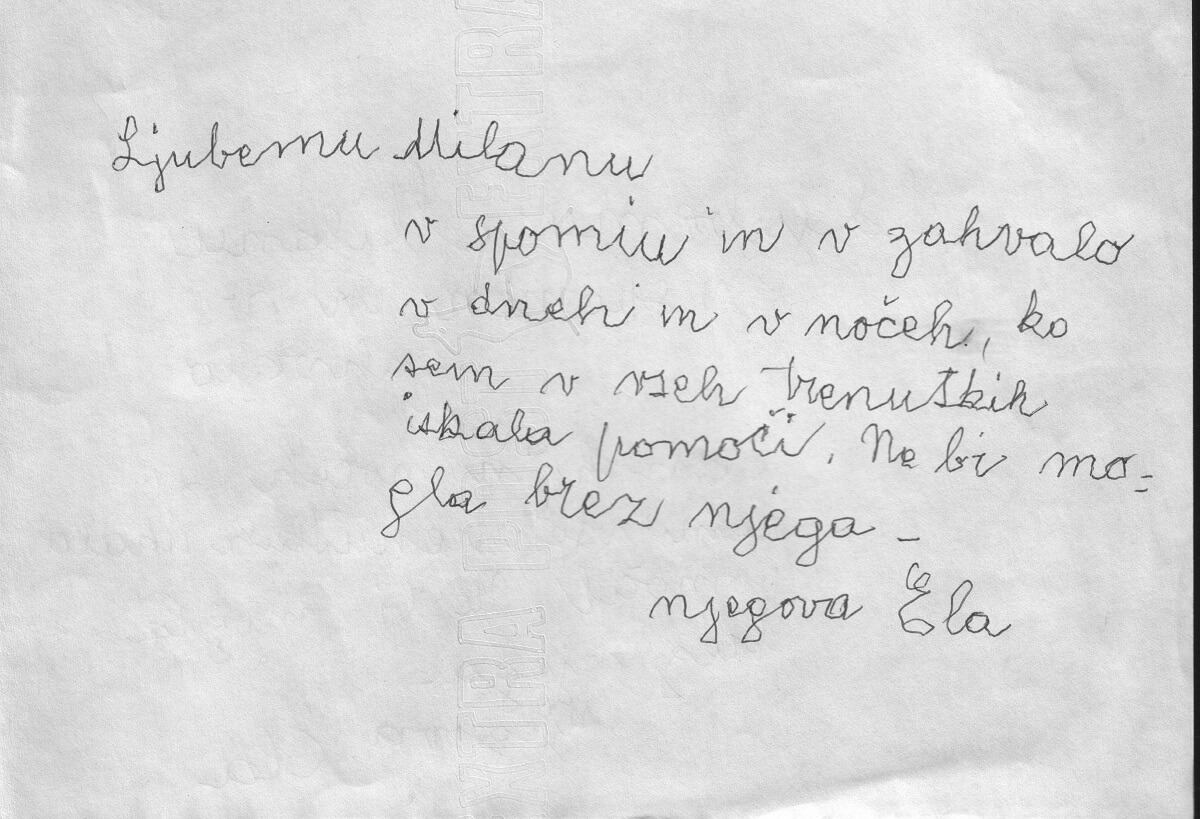 Ljubemu Milanu
v spomin in v zahvalo
v dneh in v nočeh, ko
sem v vseh trenutkih
iskala pomoči. Ne bi mo=
gla brez njega –
njegova Ela